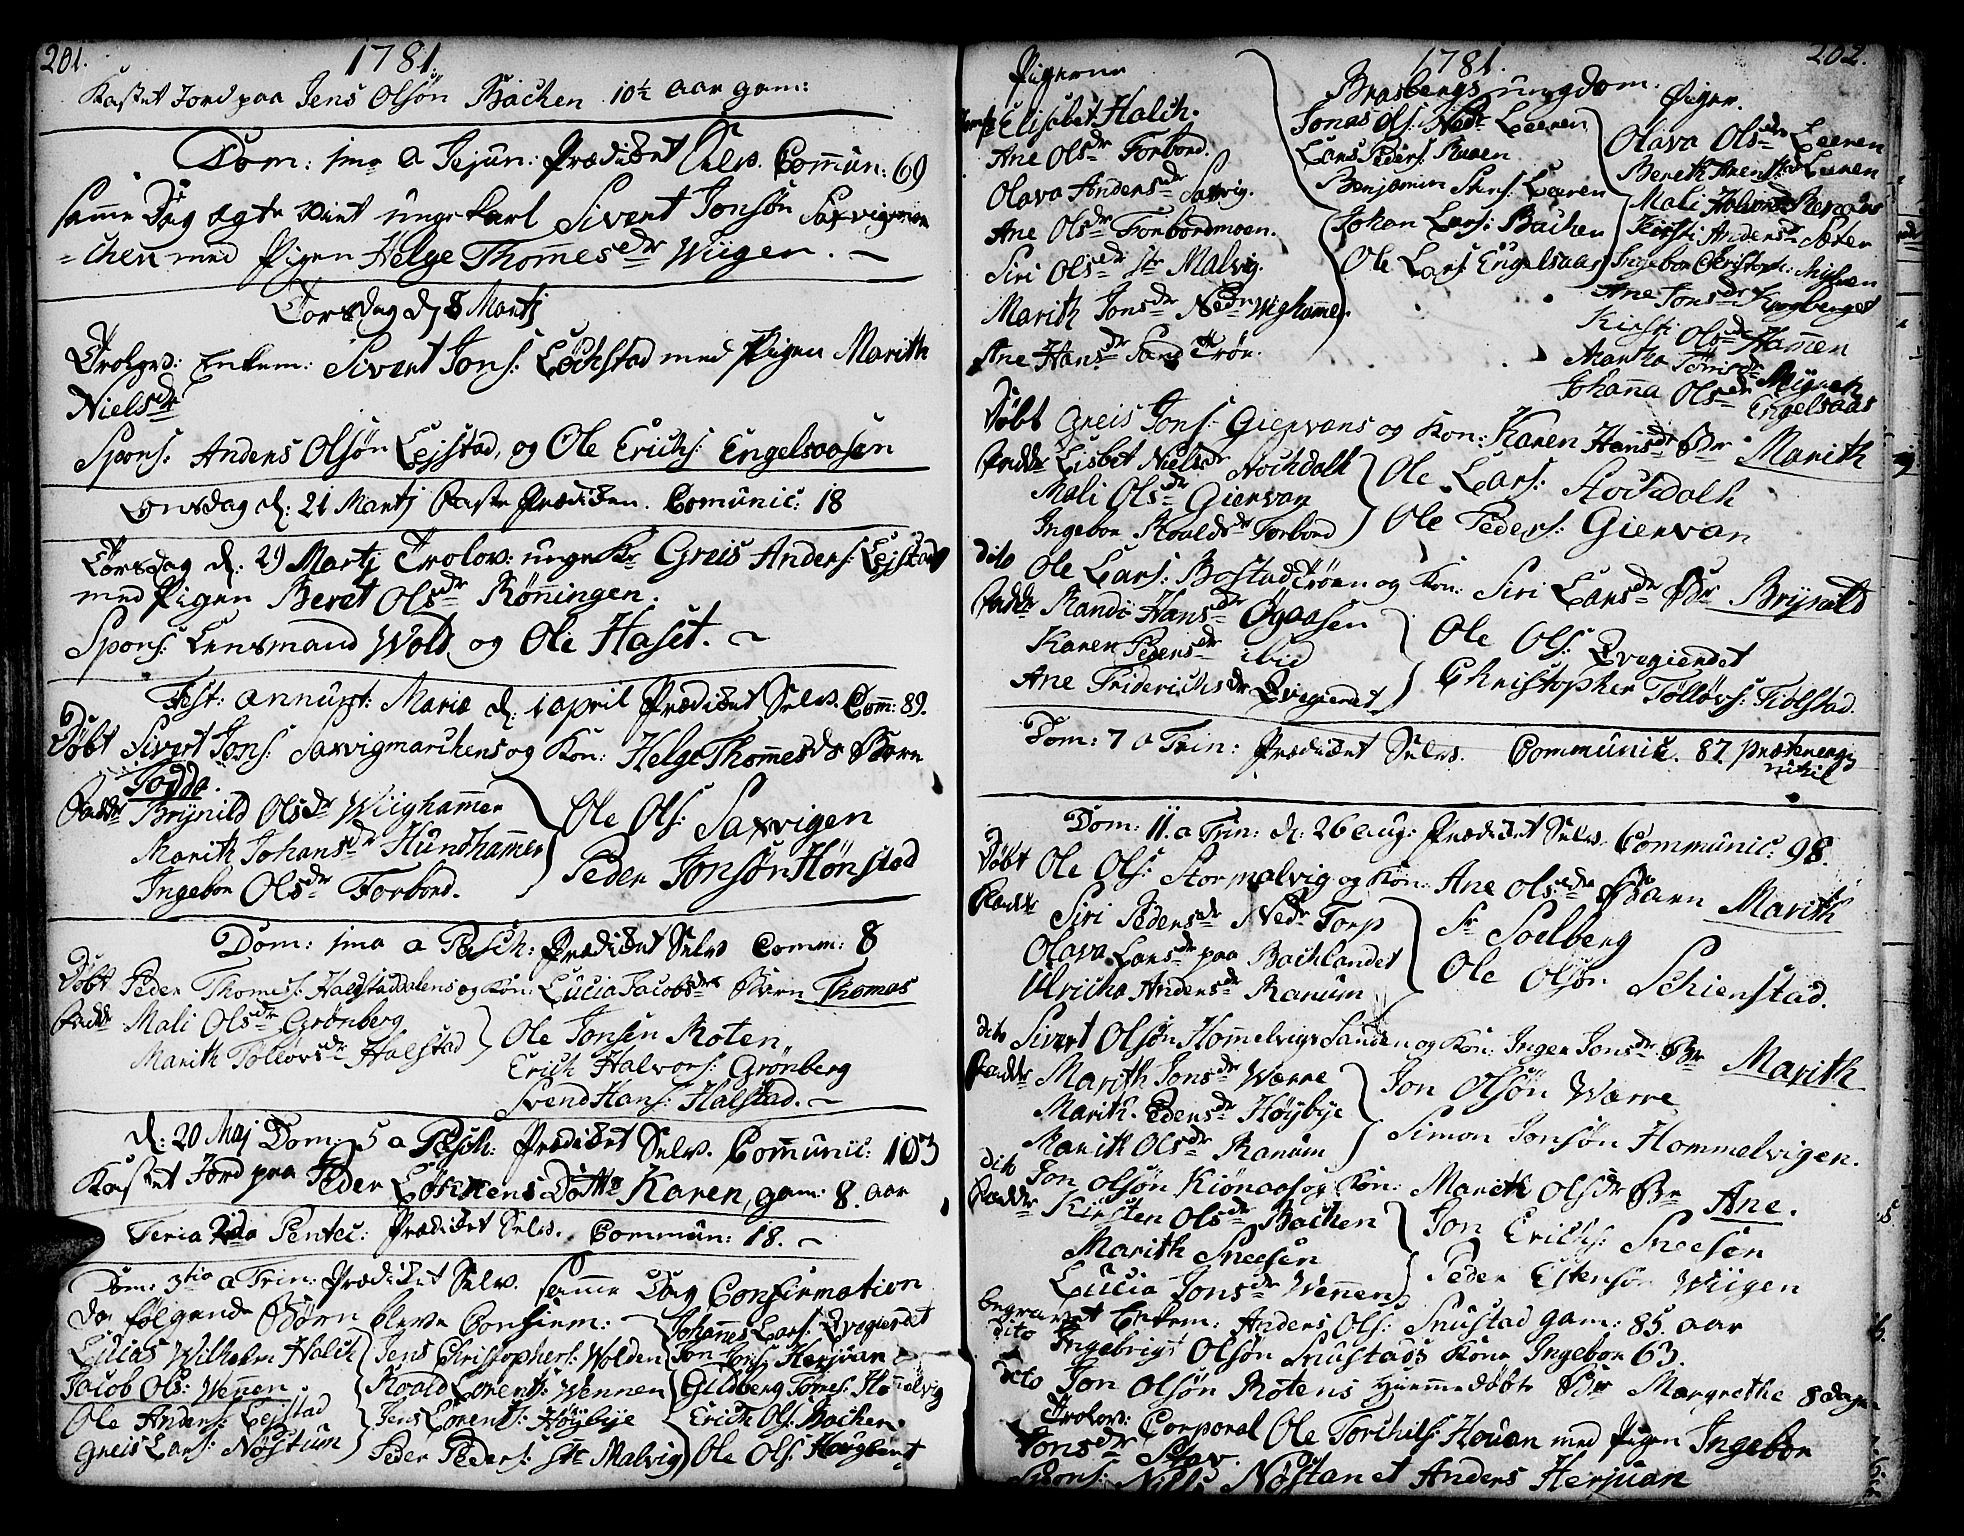 201.
1781.
Kastet Jord paa Jens Olsön Bachen 10½ aar gam:
Dom: 1ma a Jejun: Prædiket Selv. Commun: 69
samme Dag ægte viet unge karl Sivert Jonsön Saxvigmar
=chen med Pigen Helge Thommesdr Wiigen. ~
Torsdag d 8 Martj
Trolovd: Enkem: Sivert Jons: Löchstad med Pigen Marith
Nielsdr
Spons: Anders Olsön Lejstad, og Ole Erichs: Engelsaasen
Onsdag d: 21 Martj Faste Prædiken. Comunic: 18
Torsdag d: 29 Martj Trolov: unge Kr Greis Anders: Lejstad
med Pigen Beret Olsdr Rönningen.
Spons: Lensmand Wold og Ole Haset. ~
Fest: annunt: Mariæ d: 1 april Prædiket Selv. Comm: 89.
Döbt Sivert Jons: Saxvigmarchens og Kon: Helge Thommesdr Barn
Todda.
Fadd: Brynild Olsdr Wiighammer
Marith Johansdr Hundhammer
Ingebor Olsdr Forbord.
Ole Ols: Saxvigen
Peder Jonsön Hönstad
Dom: 1ma a Pasch: Prædiket Selv Comm: 8
Döbt Peder Thomes: Halstaddalens og Kon: Lucia Jacobsdr Barn Thomas
Fadd: Mali Olsdr Grönberg
Marith Tollövsdr Halstad
Ole Jonsen Roten
Erich Halvors: Grönberg
Svend Hans: Halstad. ~
d: 20 Maj Dom: 5 a Pasch: Prædiket Selv. Communic: 103
Kastet Jord paa Peder Lökkens Dotter Karen, gam: 8. aar
Feria 2da Pentec: Prædiket Selv. Commun: 18. ~
Dom: 3tia a Trin: Prædiket Selv. samme Dag Confirmation
da fölgende Börn bleve Confirm:
Lucas Wilhelm Halck
Jacob Ols: Wennen
Ole Anders: Lejstad
Greis Lars: Nöstum
Jens Christophers: Wolden
Roald Lorents: Wennen
Jens Lorents: Höybye
Peder Peders: St: Malvig
Johannes Lars: Qvegierdet
Jon Jons: Herjuan
Guldberg Tomes: Hommelvig
Erich Ols: Bachen.
Ole Ols: Haugland
202.
1781.
Pigerne
Elisabet Halck.
Ane Olsdr Forbord.
Olava Andersdr Saxvig.
Ane Olsdr Forbordmoen.
Siri Olsdr Str Malvig.
Marith Jonsdr Nedr Wighammer
Ane Hansdr Sand Trön.
Brasbergs ungdom.
Jonas Ols: Nedr Leeren
Lars Peders: Ruren
Benjamin Sivers: Leeren
Johan Lars: Bachen
Ole Lars: Engelsaas
Piger.
Olava Olsdr Leeren
Bereth Arentsdr Leeren
Mali Halvorsdr
Kirsti Andersdr Sæter
Ingebor Christoph: Mysuen
Ane Jonsdr
Kirsti Olsdr Hammen
Martha Tomesdr Mÿren
Johanna Olsdr Engelsaas
Döbt Greis Jons: Giervans og Kon: Karen Hansdr Br Marith
Fadd: Lisbet Nielsdr Stochdalh
Mali Olsdr Giervan
Ingebor Roaldsdr Forbord
Ole Lars: Stochdalh
Ole Peders: Giervan
dito Ole Lars: Bostadtröen og Kon: Siri Larsdr Br Brÿnild
Fadd: Randi Hansdr Ögaasen
Karen Pedersdr ibid
Ane Friderichsdr Qvegierdet
Ole Ols: Qvegierdet
Christopher Tollövs: Fiölstad.
Dom: 7 a Trin: Prædiket Selv. Communic. 87. præterea
nihil
Dom: 11. a Trin: d: 26 aug: Prædiket Selv. Communic: 98.
Döbt Ole Ols: Stormalvig og Kon: Ane Olsdr Barn Marith
Fadd: Siri Pedersdr Nedr Torp
Olava Larsdr paa Bachlandet
Ulricha Andersdr Ranum
Sr Soelberg
Ole Olsön Schienstad.
dito Sivert Olsön Hommelvigs Sanden og Kon: Inger Jonsdr Br Marith
Fadd: Marith Jonsdr Wærre
Marith Pedersdr Höÿbÿe
Marith Olsdr Ranum
Jon Olsön Wærre
Simon Jonsön Hommelvigen.
dito Jon Olsön Kiönaas og Kon: Marith Olsdr Br Ane.
Fadd: Kirsten Olsdr Bachen
Marith Sneesen
Lucia Jonsdr Wennen
Jon Erichs: Sneesen
Peder Estensön Wiigen
begravet Enkem: Anders Ols: Snustad gam: 85. aar
dito Ingebrigt Olsön Snustads Kone Ingebor 63.
dito Jon Olsön Rotens hiemmedöbte Br Margrethe 8 dage
Trolov: Corporal Ole Torchils: Houan med Pigen Ingebor
Jonsdr Stav.
Spons: Nils Nöstan et Anders Herjuan